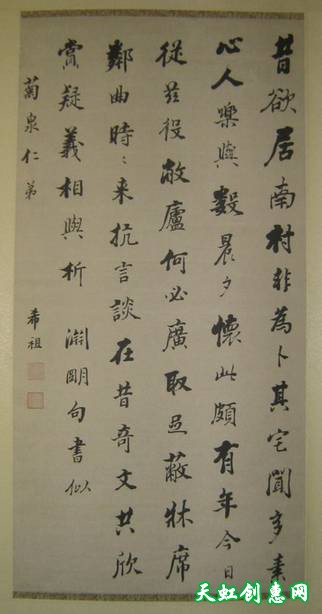 昔欲居南村非為卜其宅聞多素
心人樂與數晨夕懷此頗有年今日
從茲役敝廬何必廣取足蔽牀席
鄰曲時〻来抗言談在昔奇文共欣
賞疑義相與析 淵明句書似
菊泉仁弟
希祖
天虹创意网